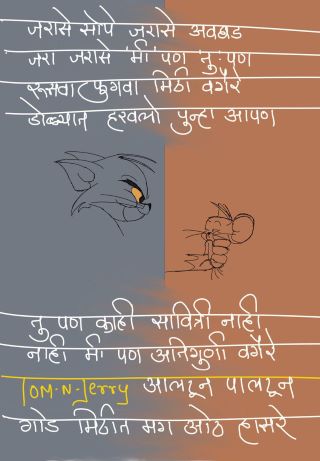 जरासे सोपे जरासे अवघड
जरा जरासे 'मी' पण तु: पण
रूसवा फुगवा मिठी वगैरे
डोळ्यात हरवलो पुन्हा आपण
तु पण काही सावित्री नाही
नाही मी पण अनिगुणी वगैरे
TOM-N-Jerry आलटून पालटून
गोड मिठीत मग ओठ हासरे